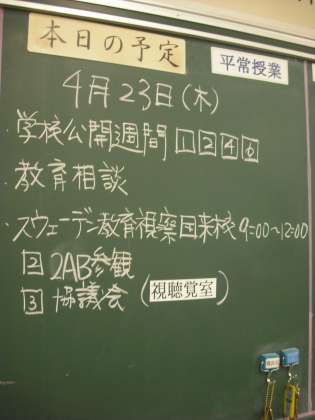 本日の予定
平常授業
4月23日(木)
学校公開週間 1 2 4 6
教育相談
・スウェーデン教育視察団来校 9:00〜12:00
2 2AB参観
3 協議会(視聴覚室)